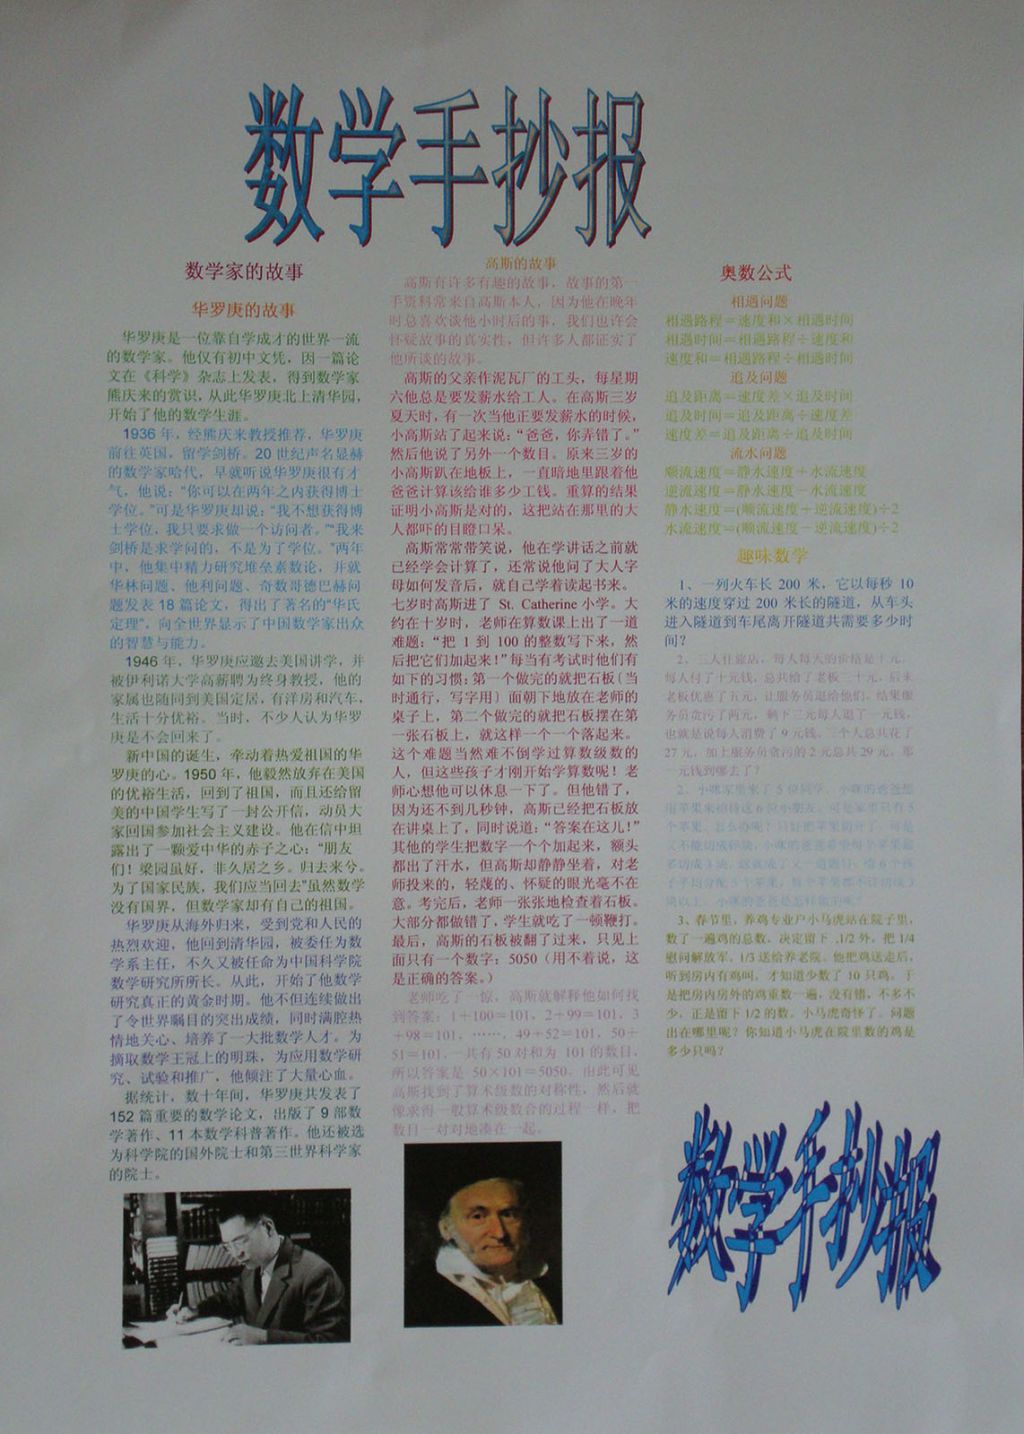 数学手抄报
数学家的故事
华罗庚的故事
华罗庚是一位靠自学成才的世界一流
的数学家。他仅有初中文凭，因一篇论
文在《科学》杂志上发表，得到数学家
熊庆来的赏识，从此华罗庚北上清华园，
开始了他的数学生涯。
1936 年，经熊庆来教授推荐，华罗庚
前往英国，留学剑桥。20 世纪声名显赫
的数学家哈代，早就听说华罗庚很有才
气，他说：“你可以在两年之内获得博士
学位。”可是华罗庚却说：“我不想获得博
士学位，我只要求做一个访问者。”“我来
剑桥是求学问的，不是为了学位。”两年
中，他集中精力研究堆垒素数论，并就
华林问题、他利问题、奇数哥德巴赫问
题发表 18 篇论文，得出了著名的“华氏
定理”，向全世界显示了中国数学家出众
的智慧与能力。
1946 年，华罗庚应邀去美国讲学，并
被伊利诺大学高薪聘为终身教授，他的
家属也随同到美国定居，有洋房和汽车，
生活十分优裕。当时，不少人认为华罗
庚是不会回来了。
新中国的诞生，牵动着热爱祖国的华
罗庚的心。1950 年，他毅然放弃在美国
的优裕生活，回到了祖国，而且还给留
美的中国学生写了一封公开信，动员大
家回国参加社会主义建设。他在信中坦
露出了一颗爱中华的赤子之心：“朋友
们！梁园虽好，非久居之乡。归去来兮。
为了国家民族，我们应当回去”虽然数学
没有国界，但数学家却有自己的祖国。
华罗庚从海外归来，受到党和人民的
热烈欢迎，他回到清华园，被委任为数
学系主任，不久又被任命为中国科学院
数学研究所所长。从此，开始了他数学
研究真正的黄金时期。他不但连续做出
了令世界瞩目的突出成绩，同时满腔热
情地关心、培养了一大批数学人才。为
摘取数学王冠上的明珠，为应用数学研
究、试验和推广，他倾注了大量心血。
据统计，数十年间，华罗庚共发表了
152 篇重要的数学论文，出版了 9 部数
学著作、11 本数学科普著作。他还被选
为科学院的国外院士和第三世界科学家
的院士。
高斯的故事
高斯有许多有趣的故事，故事的第一
手资料常来自高斯本人，因为他在晚年
时总喜欢谈他小时后的事，我们也许会
怀疑故事的真实性，但许多人都证实了
他所谈的故事。
高斯的父亲作泥瓦厂的工头，每星期
六他总是要发薪水给工人。在高斯三岁
夏天时，有一次当他正要发薪水的时候，
小高斯站了起来说：“爸爸，你弄错了。”
然后他说了另外一个数目。原来三岁的
小高斯趴在地板上，一直暗地里跟着他
爸爸计算该给谁多少工钱。重算的结果
证明小高斯是对的，这把站在那里的大
人都吓的目瞪口呆。
高斯常常带笑说，他在学讲话之前就
已经学会计算了，还常说他问了大人字
母如何发音后，就自己学着读起书来。
七岁时高斯进了 St. Catherine 小学。大
约在十岁时，老师在算数课上出了一道
难题：“把 1 到 100 的整数写下来，然
后把它们加起来！”每当有考试时他们有
如下的习惯：第一个做完的就把石板〔当
时通行，写字用〕面朝下地放在老师的
桌子上，第二个做完的就把石板摆在第
一张石板上，就这样一个一个落起来。
这个难题当然难不倒学过算数级数的
人，但这些孩子才刚开始学算数呢！老
师心想他可以休息一下了。但他错了，
因为还不到几秒钟，高斯已经把石板放
在讲桌上了，同时说道：“答案在这儿！”
其他的学生把数字一个个加起来，额头
都出了汗水，但高斯却静静坐着，对老
师投来的，轻蔑的、怀疑的眼光毫不在
意。考完后，老师一张张地检查着石板。
大部分都做错了，学生就吃了一顿鞭打。
最后，高斯的石板被翻了过来，只见上
面只有一个数字：5050（用不着说，这
是正确的答案。）
老师吃了一惊，高斯就解释他如何找
到答案：1＋100＝101，2＋99＝101，3
＋98＝101，……，49＋52＝101，50＋
51＝101，一共有 50 对和为 101 的数目，
所以答案是 50×101＝5050。由此可见
高斯找到了算术级数的对称性，然后就
像求得一般算术级数合的过程一样，把
数目一对对地凑在一起。
奥数公式
相遇问题
相遇路程＝速度和×相遇时间
相遇时间＝相遇路程÷速度和
速度和＝相遇路程÷相遇时间
追及问题
追及距离＝速度差×追及时间
追及时间＝追及距离÷速度差
速度差＝追及距离÷追及时间
流水问题
顺流速度＝静水速度＋水流速度
逆流速度＝静水速度－水流速度
静水速度＝(顺流速度＋逆流速度)÷2
水流速度＝(顺流速度－逆流速度)÷2
趣味数学
1、一列火车长 200 米，它以每秒 10
米的速度穿过 200 米长的隧道，从车头
进入隧道到车尾离开隧道共需要多少时
间？
2、三人住旅店，每人每天的价格是十元，
每人付了十元钱，总共给了老板三十元，后来
老板优惠了五元，让服务员退给他们，结果服
务员贪污了两元，剩下三元每人退了一元钱，
也就是说每人消费了 9 元钱。三个人总共花了
27 元，加上服务员贪污的 2 元总共 29 元。那
一元钱到哪去了？
2、小咪家里来了 5 位同学。小咪的爸爸想
用苹果来招待这 6 位小朋友，可是家里只有 5
个苹果。怎么办呢？只好把苹果切开了，可是
又不能切成碎块，小咪的爸爸希望每个苹果最
多切成 3 块。这就成了又一道题目：给 6 个孩
子平均分配 5 个苹果，每个苹果都不许切成 3
块以上。小咪的爸爸是怎样做的呢？
3、春节里，养鸡专业户小马虎站在院子里，
数了一遍鸡的总数，决定留下 ,1/2 外，把 1/4
慰问解放军，1/3 送给养老院。他把鸡送走后，
听到房内有鸡叫，才知道少数了 10 只鸡。于
是把房内房外的鸡重数一遍，没有错，不多不
少，正是留下 1/2 的数。小马虎奇怪了。问题
出在哪里呢？你知道小马虎在院里数的鸡是
多少只吗？
数学手抄报